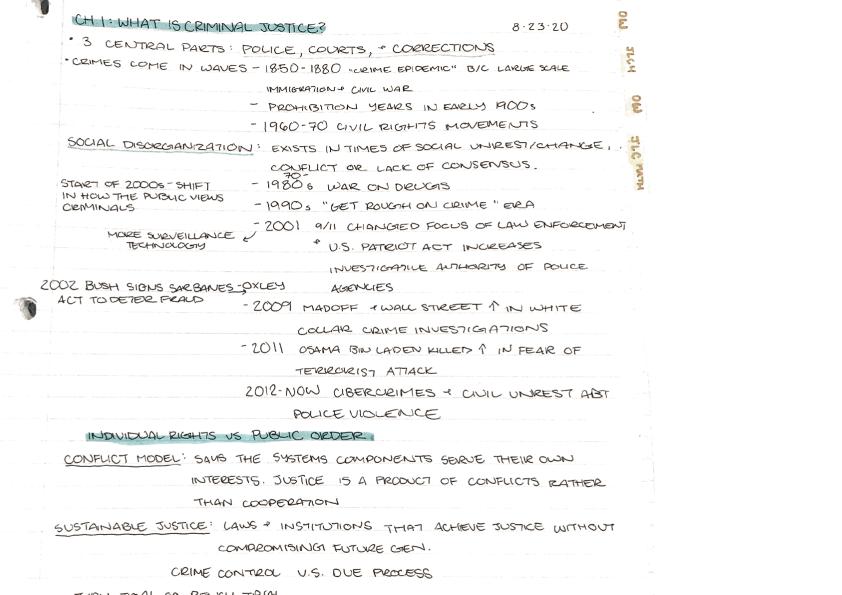 CH 1: WHAT IS CRIMINAL JUSTICE? 8-23-20
• 3 CENTRAL PARTS: POLICE, COURTS, + CORRECTIONS
• CRIMES COME IN WAVES - 1850-1880 "CRIME EPIDEMIC" B/C LARGE SCALE
IMMIGRATION + CIVIL WAR
- PROHIBITION YEARS IN EARLY 1900s
- 1960-70 CIVIL RIGHTS MOVEMENTS
SOCIAL DISORGANIZATION: EXISTS IN TIMES OF SOCIAL UNREST/CHANGE,
CONFLICT OR LACK OF CONSENSUS.
70-
- 1980s WAR ON DRUGS
START OF 2000s - SHIFT
IN HOW THE PUBLIC VIEWS
CRIMINALS
- 1990s "GET ROUGH ON CRIME" ERA
- 2001 9/11 CHANGED FOCUS OF LAW ENFORCEMENT
MORE SURVEILLANCE
TECHNOLOGY
* U.S. PATRIOT ACT INCREASES
INVESTIGATIVE AUTHORITY OF POLICE
AGENCIES
2002 BUSH SIGNS SARBANES-OXLEY
ACT TO DETER FRAUD
- 2009 MADOFF + WALL STREET ↑ IN WHITE
COLLAR CRIME INVESTIGATIONS
- 2011 OSAMA BIN LADEN KILLED ↑ IN FEAR OF
TERRORIST ATTACK
2012-NOW CIBERCRIMES + CIVIL UNREST ABT
POLICE VIOLENCE
INDIVIDUAL RIGHTS VS PUBLIC ORDER
CONFLICT MODEL: SAYS THE SYSTEMS COMPONENTS SERVE THEIR OWN
INTERESTS. JUSTICE IS A PRODUCT OF CONFLICTS RATHER
THAN COOPERATION
SUSTAINABLE JUSTICE: LAWS + INSTITUTIONS THAT ACHIEVE JUSTICE WITHOUT
COMPROMISING FUTURE GEN.
CRIME CONTROL V.S. DUE PROCESS